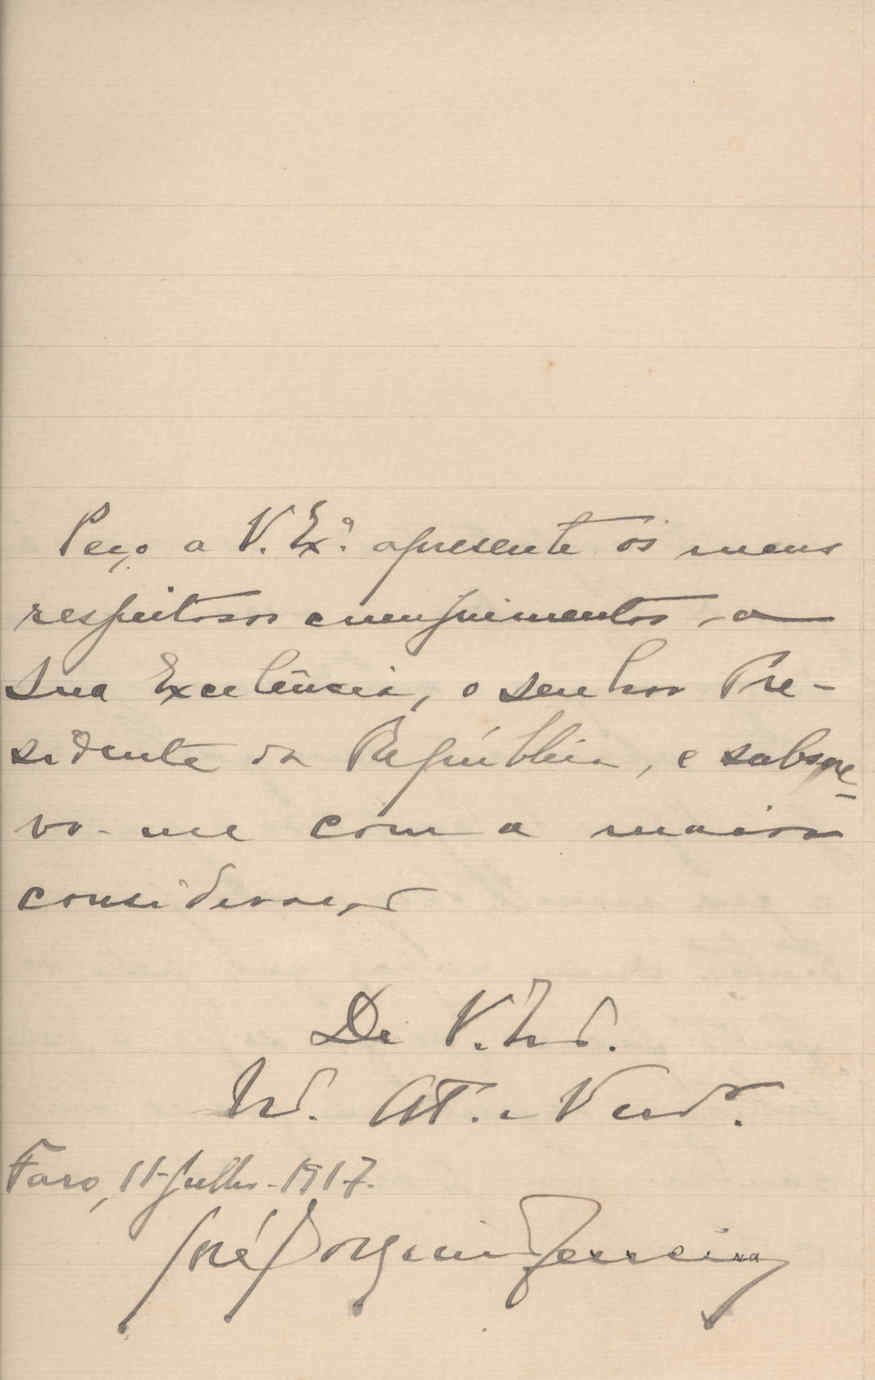 Peço a V. Exª. apresente os meus
respeitosos cumprimentos, a
Sua Excelência, o senhor Pre-
sidente da República, e subscre-
vo-me com a maior
consideração
De V.
At. e Vendr.
Faro, 11-Julho-1917-
José Ferreira